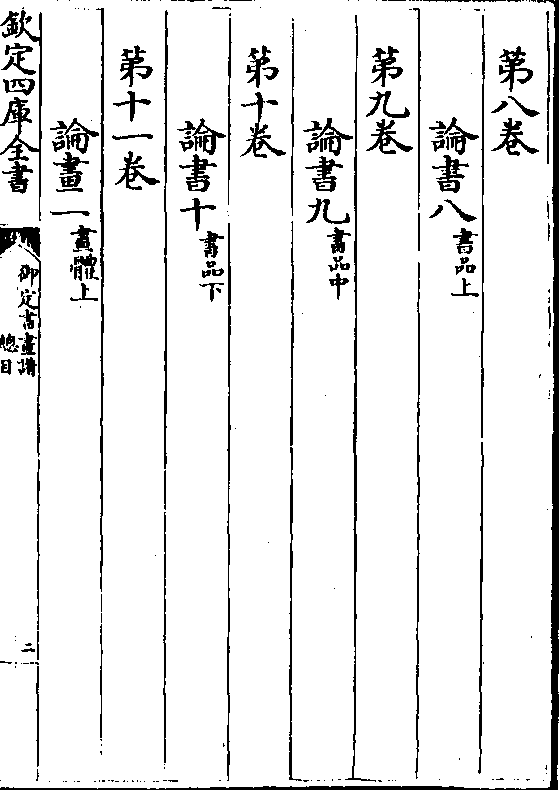 第八卷
論書八書品上
第九卷
論書九書品中
第十卷
論書十書品下
第十一卷
論畫一畫體上
欽定四庫全書
御定書畫譜
總目
二